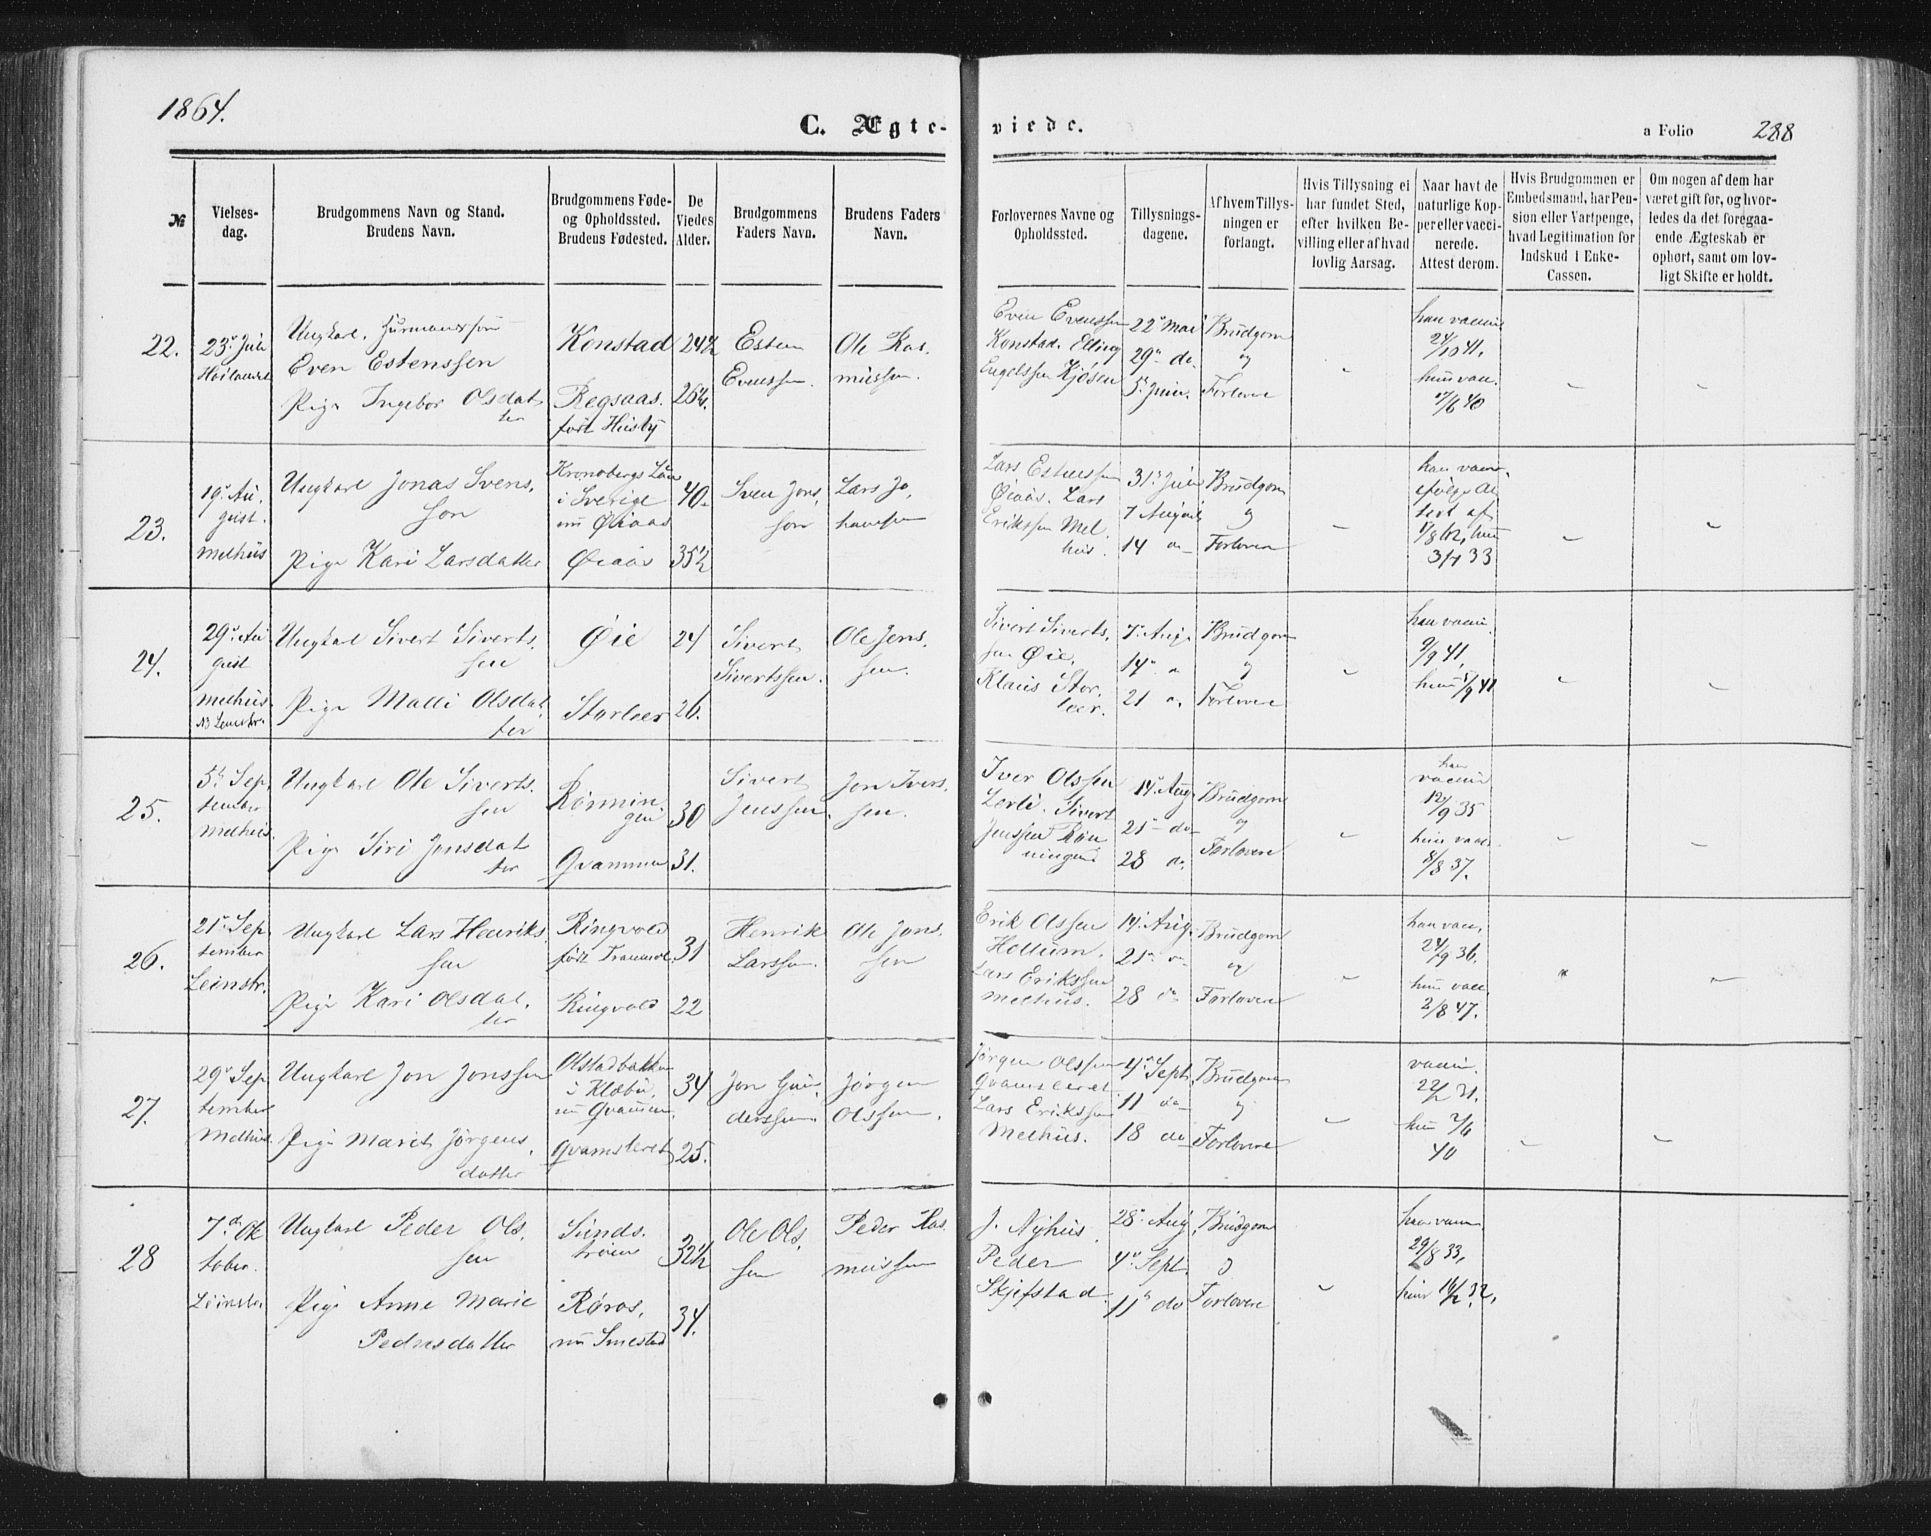 1864.
C. Ægte-
viede.
a Folio 288
№
Vielses-
dag.
Brudgommens Navn og Stand.
Brudens Navn.
Brudgommens Føde-
og Opholdssted.
Brudens Fødested.
De
Viedes
Alder.
Brudgommens
Faders Navn.
Brudens Faders
Navn.
Forlovernes Navne og
Opholdssted.
Tillysnings-
dagene.
Af hvem Tillys-
ningen er
forlangt.
Hvis Tillysning ei
har fundet Sted,
efter hvilken Be-
villing eller af hvad
lovlig Aarsag.
Naar havt de
naturlige Kop-
per eller vacci-
nerede.
Attest derom.
Hvis Brudgommen er
Embedsmand, har Pen-
sion eller Vartpenge,
hvad Legitimation for
Indskud i Enke-
Cassen.
Om nogen af dem har
været gift før, og hvor-
ledes da det foregaa-
ende Ægteskab er
ophørt, samt om lov-
ligt Skifte er holdt.
22.
23. Juli
Ungkarl,
Even Estenssen
Pige Ingebor Olsdat
ter
Konstad
Regsaas.
født Huseby
24½
26¼.
Esten
Evenssen.
Ole Ras.
mussen.
Even Evenssen
Konstad. Elling
Engelssen Kjøsen
22 Mai
29 do.
5 Juni.
Brudgom
og
Forlovere
han vaccin
24/10 41.
hun vacc.
17/6 40
23.
19. Au.
gust.
Melhus
Ungkarl Jonas Svens.
son
Pige Kari Larsdatter
Kronobergs Län
i Sverige
nu Øiaas
Øiaas
40
35½
Sven Jons.
son
Lars Jo.
hanssen
Lars Estenssen
Øiaas. Lars
Erikssen Mel.
hus.
31 Juli
7 August
14 do
Brudgom
og
Forlovere
han vacc.
ifølge At
test af
1/8 62, hun
3/7 33
24.
29. Au
gust
Melhus
Ungkarl Sivert Siverts.
sen
Pige Malli Olsdat
ter
Øie
Storleer
24
26.
Sivert
Sivertssen.
Ole Jens.
sen.
Sivert Siverts.
sen Øie.
Klaus Stor.
leer.
7 Aug.
14 "
21 "
Brudgom
og
Forlovere
han vaccin.
9/9 41,
hun 5/9 41
25.
5 Sep.
tember
Melhus.
Ungkarl Ole Siverts.
sen
Pige Siri Jonsdat
ter
Rønnin.
gen
Qvammen
30
31.
Sivert
Jenssen.
Jon Ivers.
sen.
Iver Olssen
Lerli. Sivert
Jenssen Røn
ningen
14 Aug.
21 do
28 do.
Brudgom
og
Forlovere
han
vaccin
12/9 35
hun vacc.
8/8 37.
26.
21 Sep.
tember
Leinstr.
Ungkarl Lars Henriks.
sen
Pige Kari Olsdat.
ter
Ringvold
født
Ringvold
31
22
Henrik
Larssen.
Ole Jons.
sen
Erik Olssen
Hollum.
Lars Erikssen
Melhus.
14 Aug.
21 "
28 do
Brudgom
og
Forlovere
han vacc.
24/9 36.
hun vacc.
2/8 47.
27.
29 Sep.
tember
Melhus
Ungkarl Jon Jonssen
Pige Marit Jørgens.
datter
Olstadbakken
i Klæbu,
nu Qvammen.
Qvamsleret
34
25.
Jon Gun
derssen
Jørgen
Olssen.
Jørgen Olssen
Qvamsleret
Lars Erikssen
Melhus.
4 Sept.
11 do
18 do
Brudgom
og
Forlovere
vaccin.
22/2 31.
hun 7/6
40
28
7. Ok
tober.
Leinstr.
Ungkarl Peder Ols.
sen
Pige Anne Marie
Pedersdatter
Sunds.
trøen
Røros,
nu Smestad
32½
34.
Ole Ols.
sen
Peder Ras.
mussen
J. Nyhus.
Peder
Skjefstad.
28 Aug.
4 Sept.
11 do
Brudgom
og
Forlovere
han vaccin.
29/8 33.
hun 16/2 32.